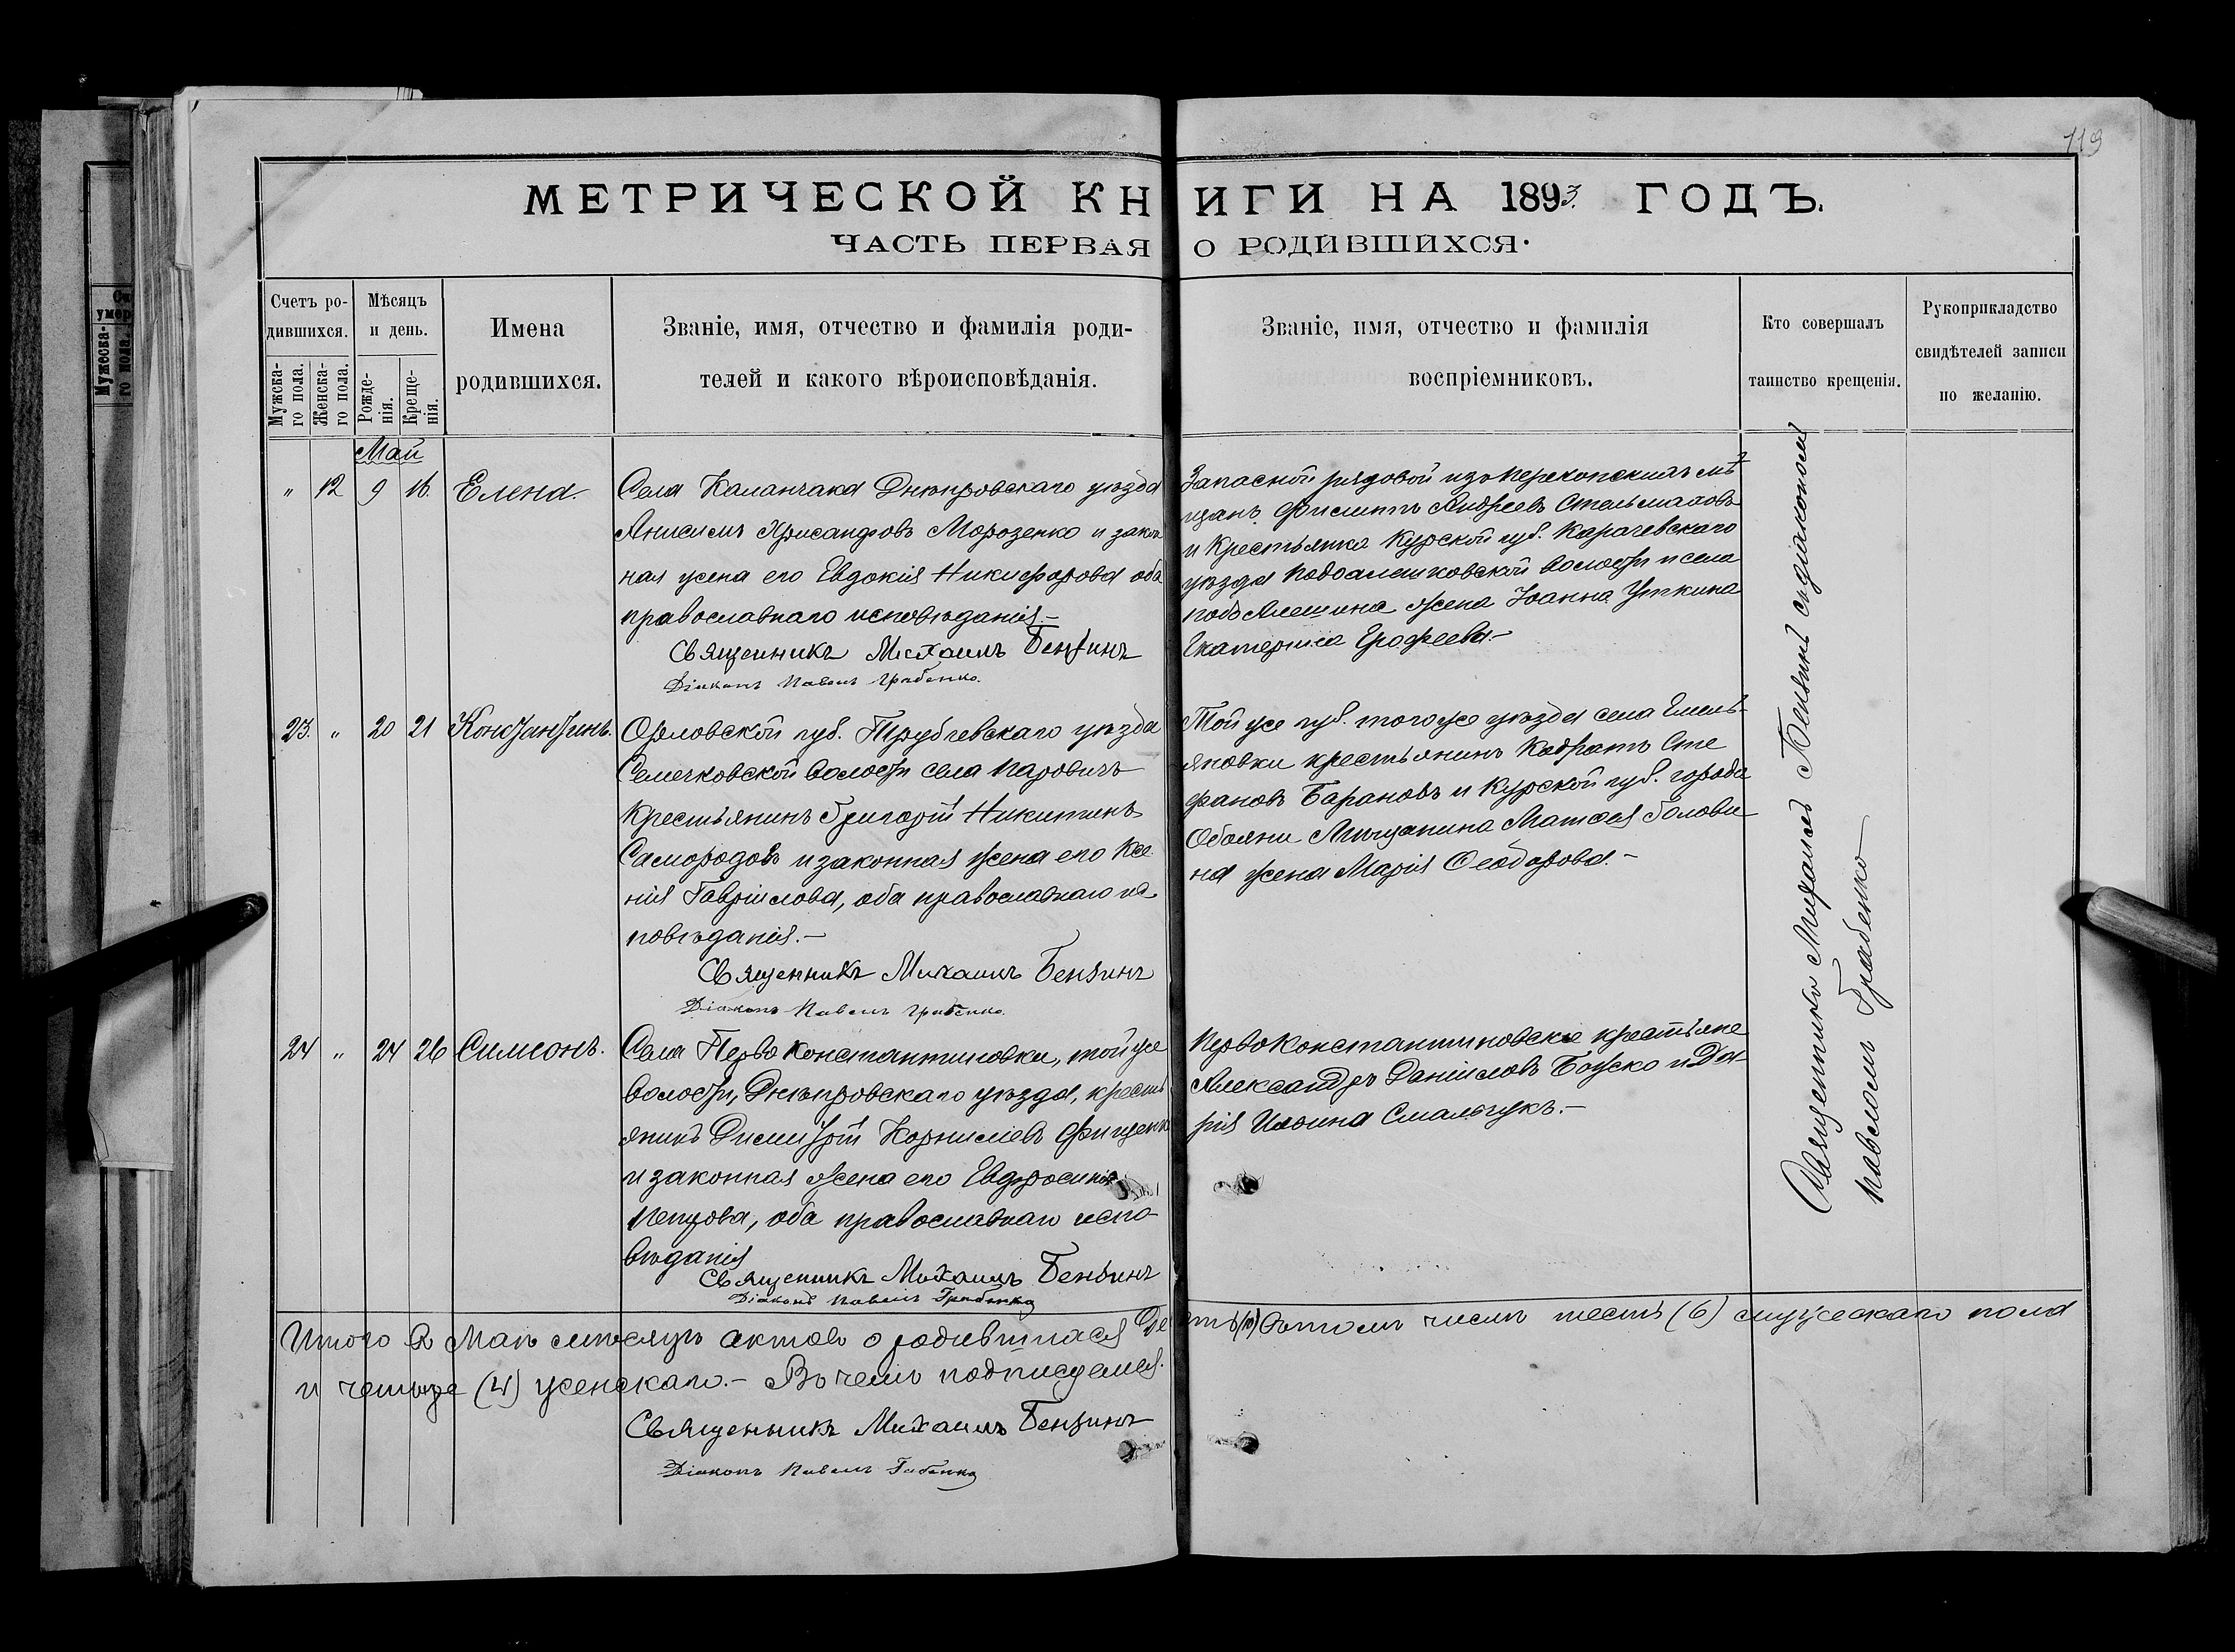 119
МЕТРИЧЕСКОЙ КНИГИ НА 1893 ГОДЪ.
ЧАСТЬ ПЕРВАЯ О РОДИВШИХСЯ.
Счетъ ро-
дившихся.
Мужска-
го пола.
Женска-
го пола.
Мѣсяцъ
и день.
Рожде-
нія.
Креще-
нія.
Имена
родившихся.
Званіе, имя, отчество и фамилія роди-
телей и какого вѣроисповѣданія.
Званіе, имя, отчество и фамилія
воспріемниковъ.
Кто совершалъ
таинство крещенія.
Рукоприкладство
свидѣтелей записи
по желанію.
Май
" 12 9 16. Елена.
Села Каланчака Днѣпровскаго уѣзда
Анисимъ Хрисанфовъ Морозенко и закон
ная жена его Евдокія Никифорова оба
православнаго исповѣданія.—
Священникъ Михаилъ Бензинъ
Діаконъ Павелъ Грабенко.
Запасной рядовой изъ перекопскихъ мѣ
щанъ Филиппъ Андреевъ Стельмаховъ
и крестьянка Курской губ. Карачевскаго
уѣзда волости и села
жена Іоанна Уткина
Екатерина Ерофеева.—
23. " 20 21 Константинъ.
Орловской губ. Трубчевскаго уѣзда
Семечковской волости села
крестьянинъ Григорій Никитинъ
Самородовъ и законная жена его Ксе
нія Гавріилова, оба православнаго ис
повѣданія.—
Священникъ Михаилъ Бензинъ
Діаконъ Павелъ Грабенко.
Той же губ. того же уѣзда села Емель
яновки крестьянинъ Кодратъ Сте
фановъ Барановъ и Курской губ. города
Обояни Мѣщанина Матѳея Голови
на жена Марія Ѳеодорова.—
24 " 24 26 Симеонъ.
Села Перво Константиновки, той же
волости, Днѣпровскаго уѣзда, кресть
янинъ Димитрій Корниліевъ Фищенк
и законная жена его Евфросинія
Петрова, оба православнаго испо-
вѣданія
Священникъ Михаилъ Бензинъ
Діаконъ Павелъ Грабенко
Первоконстантиновскіе крестьяне
Александръ Даніиловъ Боуско и Да
рія Ильина Смальчукъ.—
Священникъ Михаилъ Бензинъ съ діакономъ
Павломъ Грабенко
Итого въ Маѣ мѣсяцѣ актовъ о родившихся десять (10) Въ томъ числѣ шесть (6) мужескаго пола
и четыре (4) женскаго.— Въ чемъ подписуемся.
Священникъ Михаилъ Бензинъ
Діаконъ Павелъ Грабенко